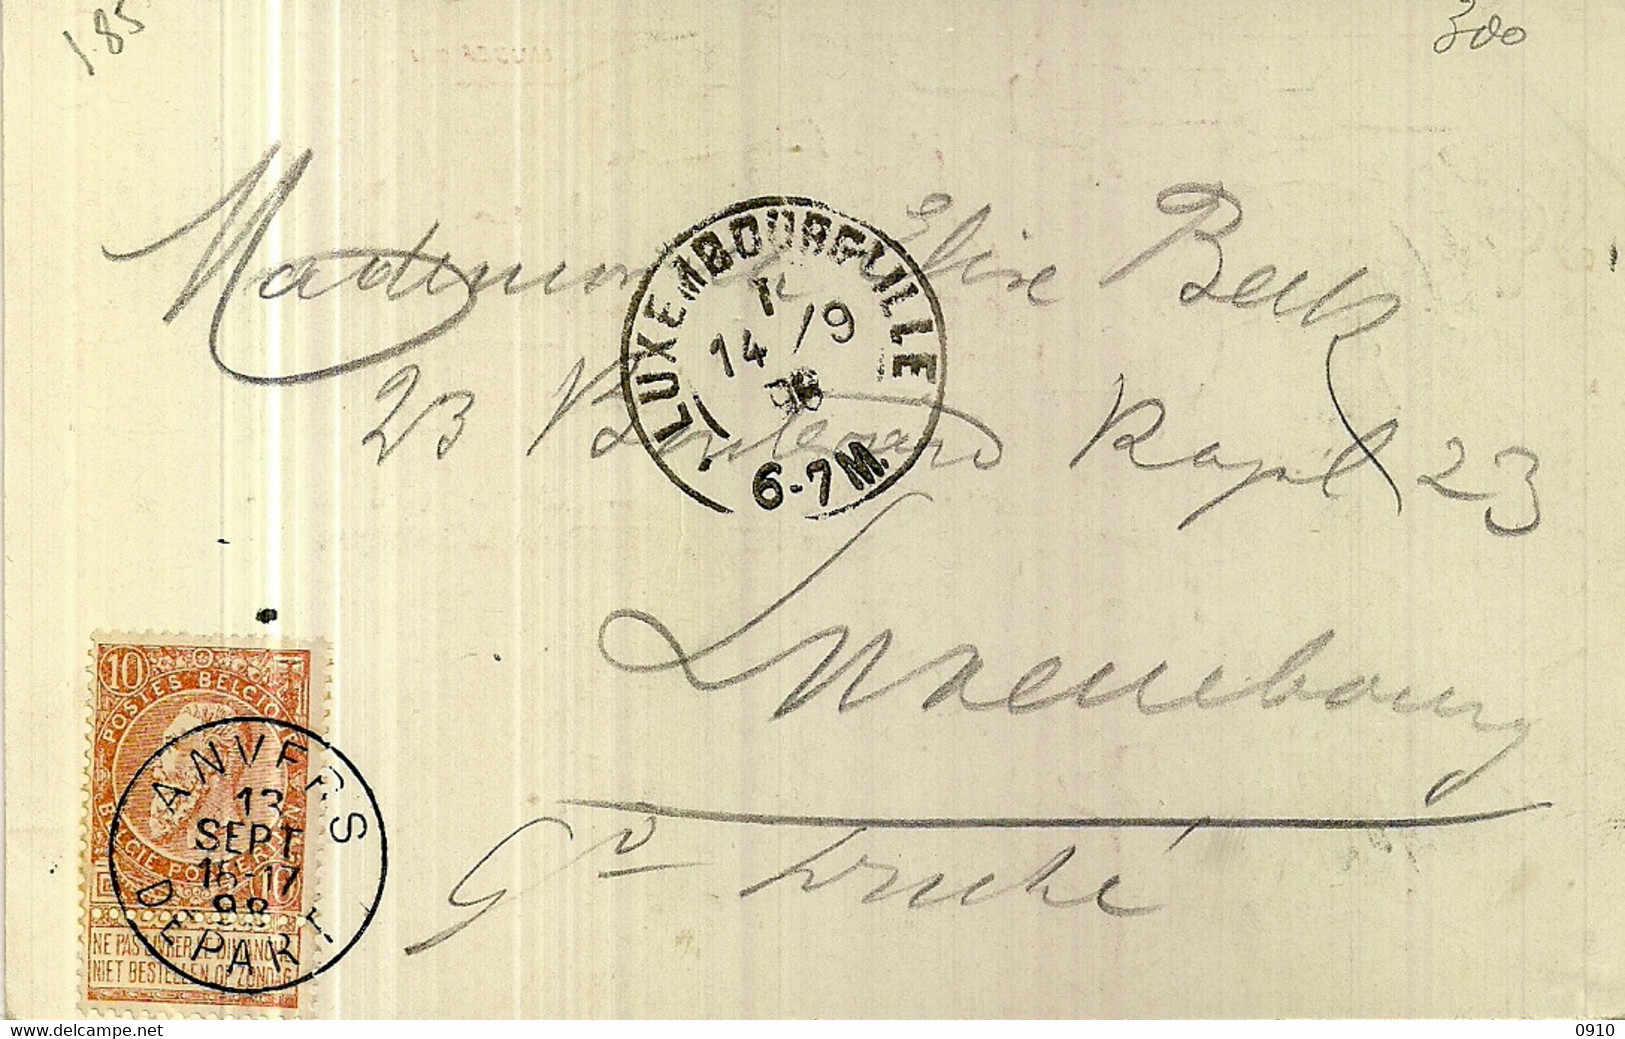 1.85
300
Mademoiselle Elise Beck
23 Boulevard Royal 23
Luxembourg
Gd Duché
LUXEMBOURG-VILLE
14 /9
98
6-7 M.
10
POSTES BELGIQUE
BELGIE POSTERIJEN
10
NE PAS LIVRER LE DIMANCHE
NIET BESTELLEN OP ZONDAG
ANVERS
13
SEPT
16-17
98
DÉPART
0910